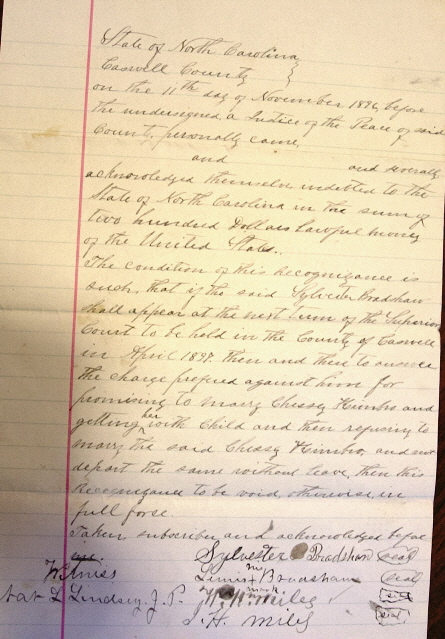 State of North Carolina }
Caswell County }
on the 11th day of November 1896, before
the undersigned a Justice of the Peace of said
County, personally came,
and and severally
acknowledged themselves indebted to the
State of North Carolina in the sum of
two hundred Dollars Lawful money
of the United States.
The condition of this Recognizance is
such, that if the said Sylvester Bradshaw
shall appear at the next term of the Superior
Court to be held in the County of Caswell
in April 1897. then and then to answer
the charge prefered against him for
promising to marry Chessy Kimbro and
getting her with child and then refusing to
marry the said Chessy Kimbro, and not
depart the same without leave, then this
Recognizance to be void, otherwise in
full force.
Taken, subscriber and acknowledged before
me. Sylvester Bradshaw seal
Witness Bradshaw seal
Nat L Lindsey J.P. W. H. Miles seal
J. H. Miles seal